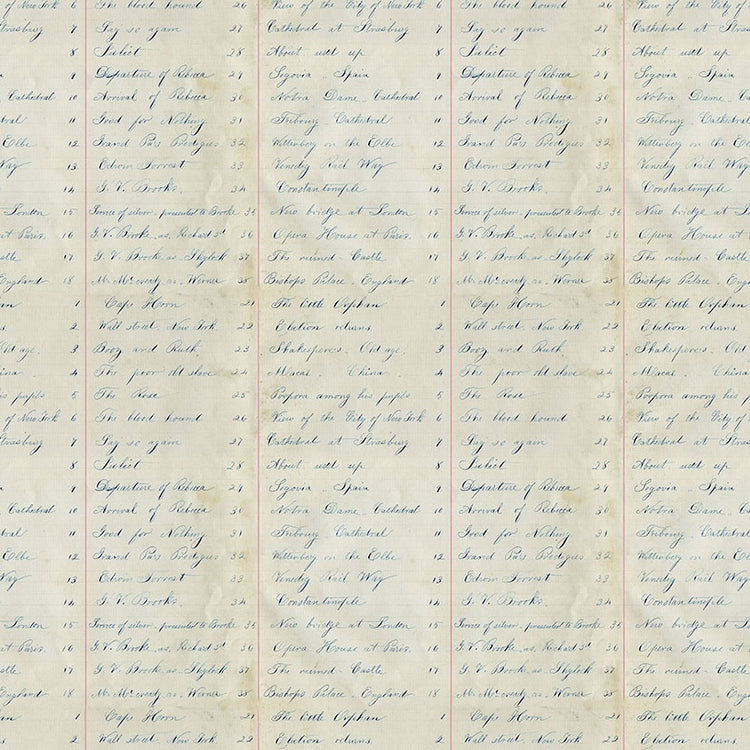 of New York 6 The blood hound 26 View of the City of New York 6 The blood hound 26 View of the City of
Strasburg 7 Say so again 27 Cathedral at Strasburg 7 Say so again 27 Cathedral at Stras
8 Juliet 28 About used up 8 Juliet 28 About used up
9 Departure of Rebecca 29 Segovia - Spain 9 Departure of Rebecca 29 Segovia - Spain
Cathedral 10 Arrival of Rebecca 30 Notra Dame. Cathedral 10 Arrival of Rebecca 30 Notra Dame. Cat
dral 11 Good for Nothing 31 Cathedral 11 Good for Nothing 31 Cathedral
Elbe 12 Grand Pas 32 Wittenberg on the Elbe 12 Grand Pas 32 Wittenberg on the Elb
Way 13 Edwin Forrest 33 Rail Way 13 Edwin Forrest 33 Rail Way
14 G. V. Brooks. 34 Constantinople 14 G. V. Brooks. 34 Constantinople
London 15 Service of silver. presented to Brooke 35 New bridge at London 15 Service of silver. presented to Brooke 35 New bridge at Lon
at Paris. 16 G. V. Brooke. as. Richard 3d 36 Opera House at Paris. 16 G. V. Brooke. as. Richard 3d 36 Opera House at
stle 17 G. V. Brooke as Shylock 37 The ruined - Castle 17 G. V. Brooke as Shylock 37 The ruined - Castle
England 18 as. Werner 38 Bishops Palace. England 18 as. Werner 38 Bishops Palace. Eng
an 1 Cape Horn 21 The little Orphan 1 Cape Horn 21 The little Orphan
s. 2 Wall street. New York 22 Election returns. 2 Wall street. New York 22 Election returns.
Old age. 3 Booz and Ruth 23 Shakesperes. Old age. 3 Booz and Ruth 23 Shakesperes. Old
4 The poor old slave 24 Macao. China 4 The poor old slave 24 Macao. China
his pupils 5 The Rose 25 among his pupils 5 The Rose 25 among his p
of New York 6 The blood hound 26 View of the City of New York 6 The blood hound 26 View of the City of
Strasburg 7 Say so again 27 Cathedral at Strasburg 7 Say so again 27 Cathedral at Stras
8 Juliet 28 About used up 8 Juliet 28 About used up
9 Departure of Rebecca 29 Segovia - Spain 9 Departure of Rebecca 29 Segovia - Spain
Cathedral 10 Arrival of Rebecca 30 Notra Dame. Cathedral 10 Arrival of Rebecca 30 Notra Dame. Cat
dral 11 Good for Nothing 31 Cathedral 11 Good for Nothing 31 Cathedral
Elbe 12 Grand Pas 32 Wittenberg on the Elbe 12 Grand Pas 32 Wittenberg on the Elb
Way 13 Edwin Forrest 33 Rail Way 13 Edwin Forrest 33 Rail Way
14 G. V. Brooks. 34 Constantinople 14 G. V. Brooks. 34 Constantinople
London 15 Service of silver. presented to Brooke 35 New bridge at London 15 Service of silver. presented to Brooke 35 New bridge at Lon
at Paris. 16 G. V. Brooke. as. Richard 3d 36 Opera House at Paris. 16 G. V. Brooke. as. Richard 3d 36 Opera House at
stle 17 G. V. Brooke as Shylock 37 The ruined - Castle 17 G. V. Brooke as Shylock 37 The ruined - Castle
England 18 as. Werner 38 Bishops Palace. England 18 as. Werner 38 Bishops Palace. Eng
an 1 Cape Horn 21 The little Orphan 1 Cape Horn 21 The little Orphan
s. 2 Wall street. New York 22 Election returns. 2 Wall street. New York 22 Election returns.